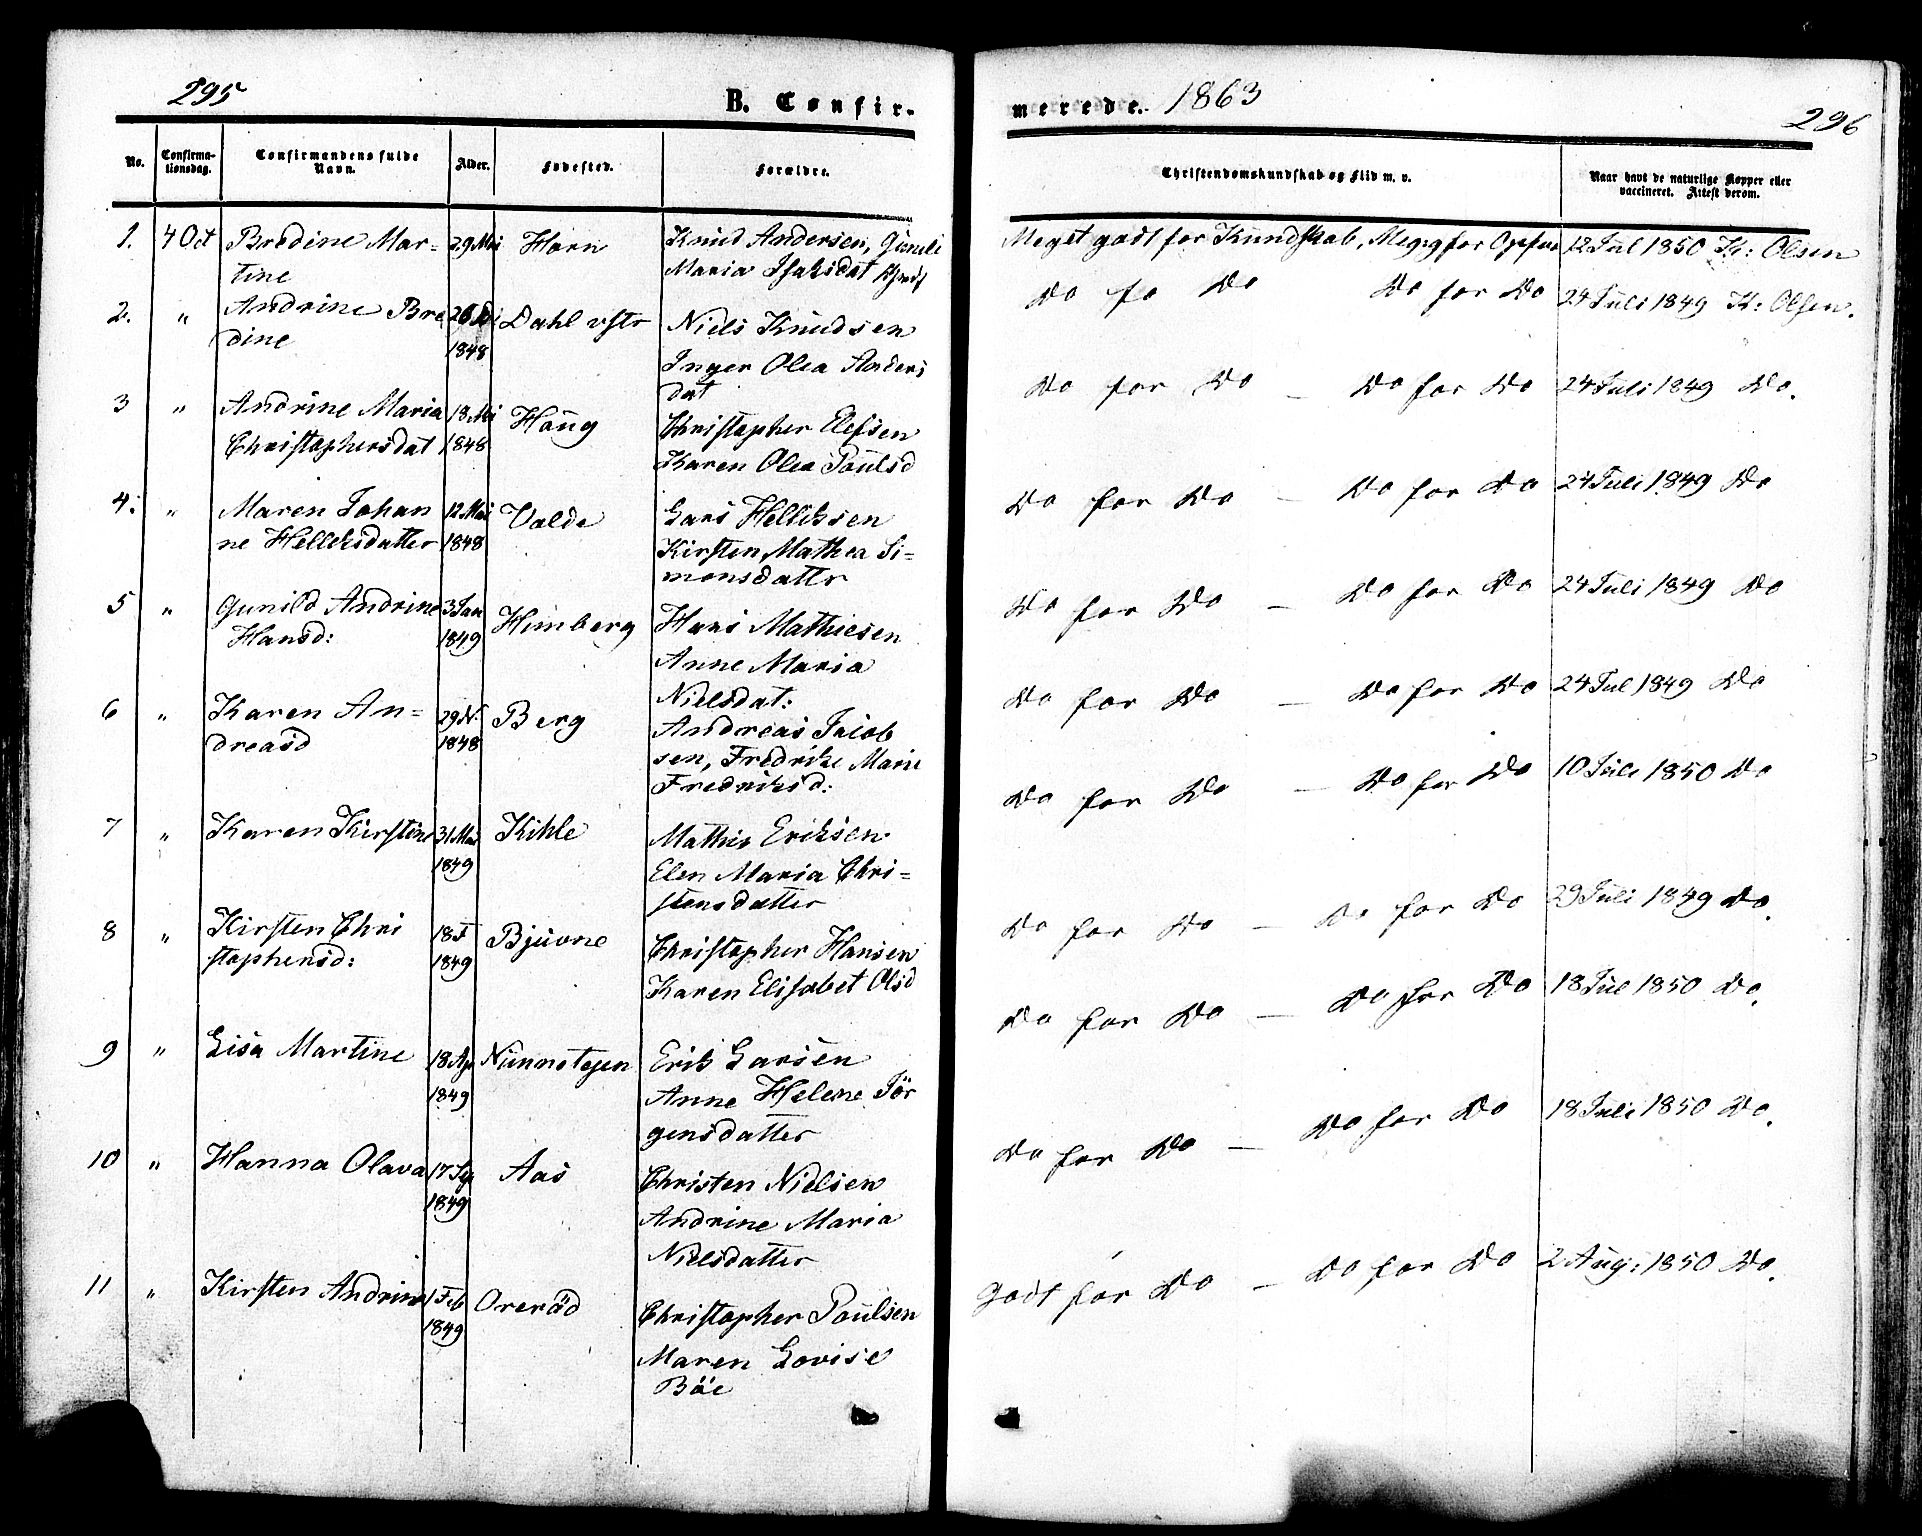 295
B. Confir-
merede. 1863
296
No.
Confirma-
tionsdag.
Confirmandens fulde
Navn.
Alder.
Fødested.
Forældre.
Christendomskundskab og Flid m. v.
Naar havt de naturlige Kopper eller
vaccineret. Attest derom.
1. 4 Oct Bredine Mar- 29 Mai Horn Knud Andersen, Gunild
tine Maria Isaksdat
Meget godt for Kundskab, Meg: g for Opførs 12 Jul 1850 K: Olsen
2. " Andrine Bre Dahl vstr Niels Knudsen
dine 1848 Inger Olea Anders
dat
Do fo Do Do for Do 24 Juli 1849 K: Olsen.
3 " Andrine Maria 18 Mai Haug Christopher Elefsen
Christophersdat 1848 Karen Olea Paulsd
Do for Do – Do for Do 24 Juli 1849 Do.
4: " Maren Johan 12 Mai Valde Lars Helliksen
ne Helleksdatter 1848 Kirsten Mathea Si=
monsdattr
Do for Do – Do for Do 24 Juli 1849 Do
5 " Gunild Andrine 3 Jan Himberg Hans Mathiesen
Hansd: 1849 Anne Maria
Nielsdat:
Do for Do – Do for Do 24 Juli 1849 Do
6 " Karen An= 29 N. Berg Andreas Jacob
dreasd 1848 sen, Fredrike Marie
Fredriksd:
Do for Do – Do for Do 24 Jul 1849 Do
7 " Karen Kirstine 31 Mai Kihle Mathis Eriksen
1849 Elen Maria Chri=
stensdatter
Do for Do – Do for Do 10 Juli 1850 Do
8 " Kirsten Chri 18 F Bjuvne Christopher Hansen
stophersd: 1849 Karen Elisabet Olsd
Do for Do – Do for Do 29 Juli 1849 Do.
9 " Lisa Martine 18 Ap Nunnetejen Erik Larsen
1849 Anne Helene Jör
gensdatter
Do for Do – Do for Do 18 Jul 1850 Do.
10 " Hanna Olava 17 Sep Aas Christen Nielsen
1849 Andrine Maria
Nielsdatter
Do for Do – Do for Do 18 Juli 1850 Do.
11 " Kirsten Andrine 1 Feb Oreröd Christopher Paulsen
1849 Maren Lovise
Böe
Godt for Do – Do for Do 2 Aug: 1850 Do.